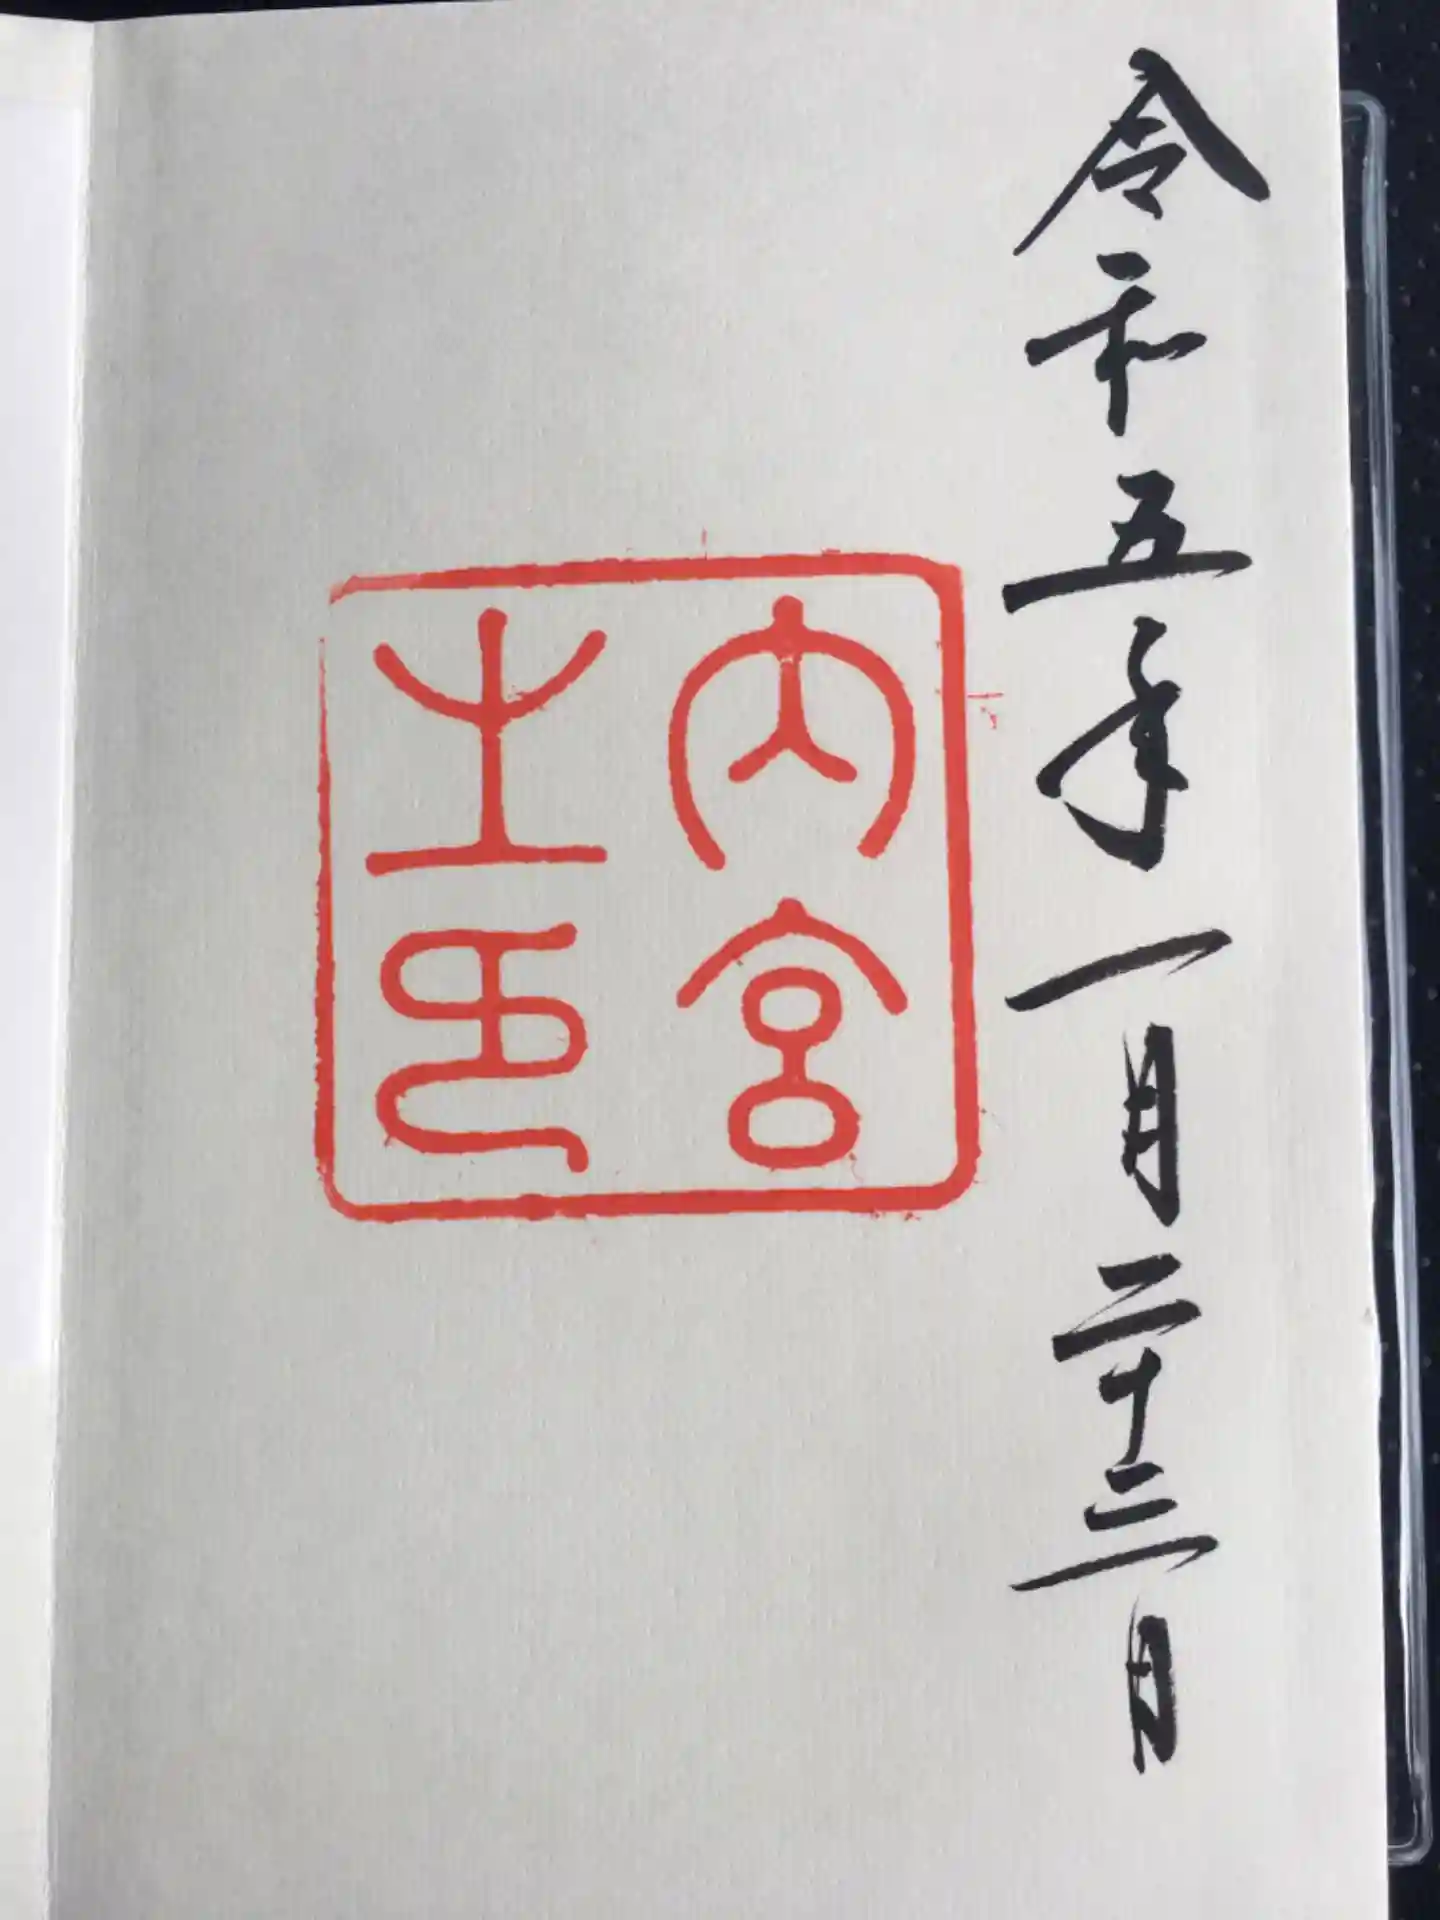 令和五年一月二十三日
内宮
之印